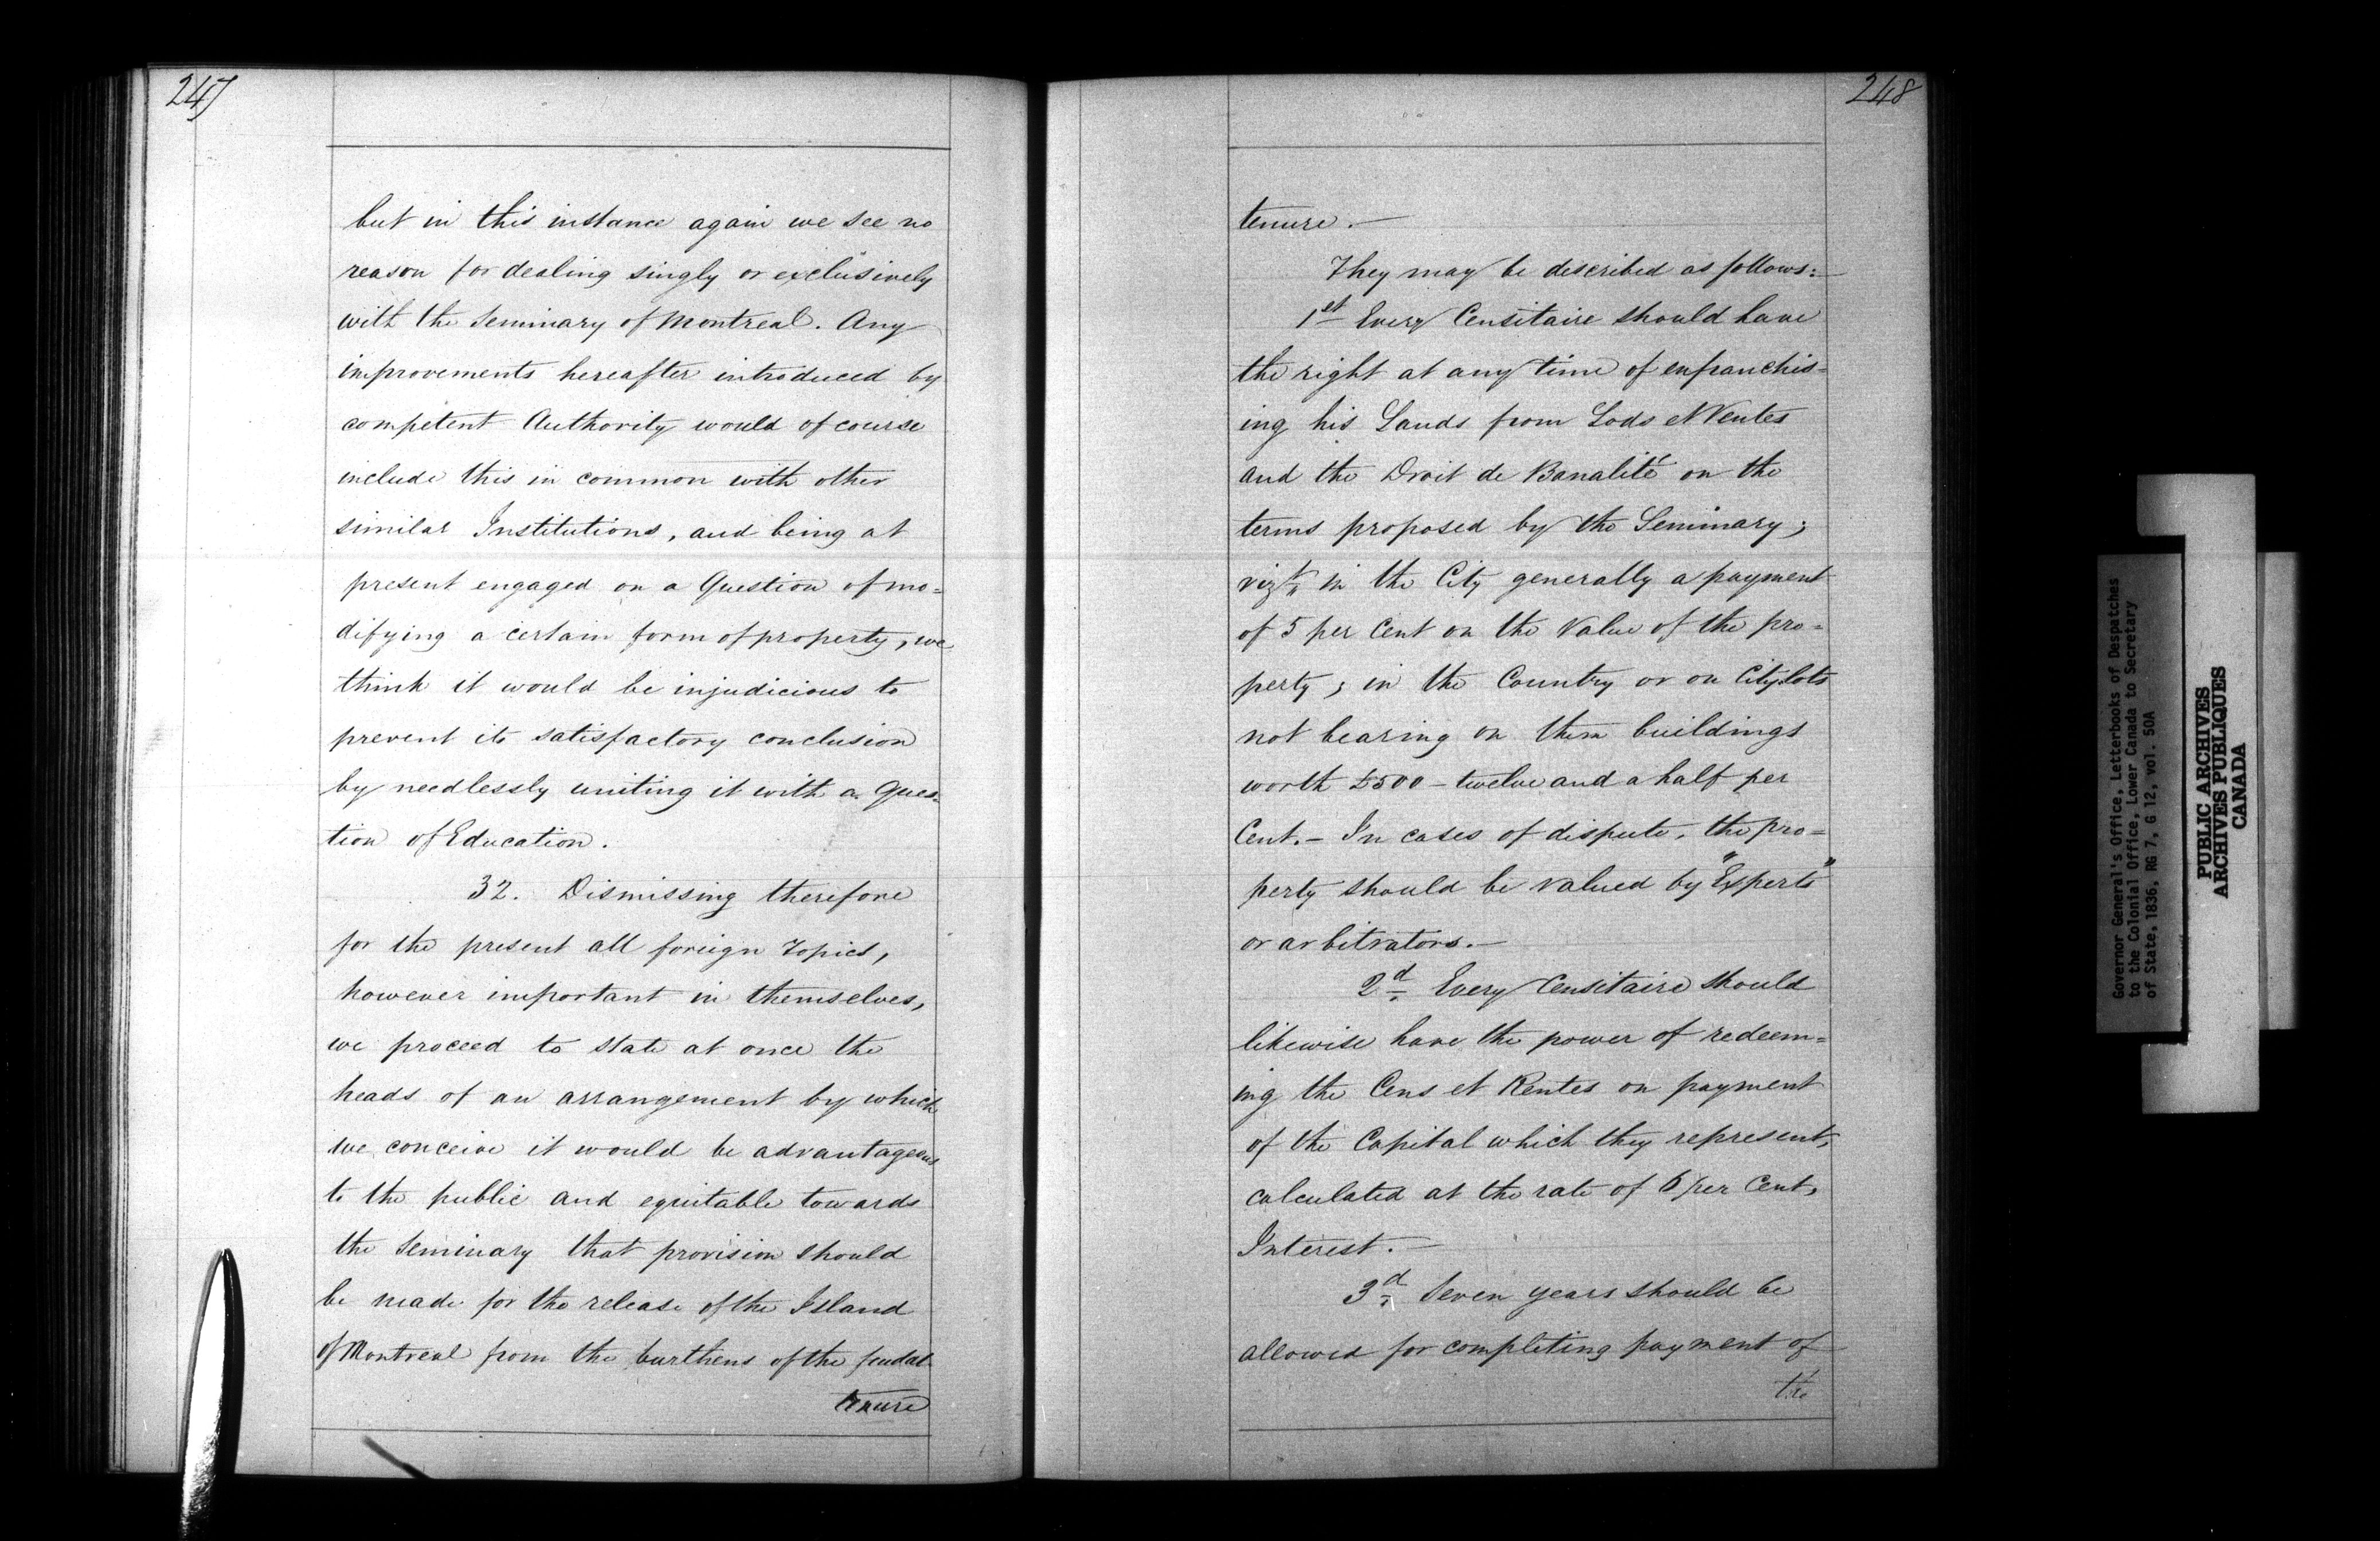 247
but in this instance again we see no
reason for dealing singly or exclusively
with the Seminary of Montreal. Any
improvements hereafter introduced by
competent Authority would of course
include this in common with other
similar Institutions, and being at
present engaged on a Question of mo=
difying a certain form of property, we
think it would be injudicious to
prevent its satisfactory conclusion
by needlessly uniting it with a Ques=
tion of Education.
32. Dismissing therefore
for the present all foreign Topics,
however important in themselves,
we proceed to state at once the
heads of an arrangement by which
we conceive it would be advantageous
to the public and equitable towards
the Seminary that provision should
be made for the release of the Island
of Montreal from the burthens of the feudal
tenure
248
tenure.—
They may be described as follows:—
1st Every Censitaire should have
the right at any time of enfranchis=
ing his Lands from Lods et Ventes
and the Droit de Banalité on the
terms proposed by the Seminary;
vizt in the City generally a payment
of 5 per Cent on the Value of the pro=
perty; in the Country or on City lots
not bearing on them buildings
worth £500 – twelve and a half per
Cent. – In cases of dispute, the pro=
perty should be valued by "Experts"
or arbitrators.—
2d Every Censitaire should
likewise have the power of redeem=
ing the Cens et Rentes on payment
of the Capital which they represent,
calculated at the rate of 6 per Cent,
Interest.—
3d Seven years should be
allowed for completing payment of
the
Governor General's Office, Letterbooks of Despatches
to the Colonial Office, Lower Canada to Secretary
of State, 1836, RG 7, G 12, vol. 50A
PUBLIC ARCHIVES
ARCHIVES PUBLIQUES
CANADA